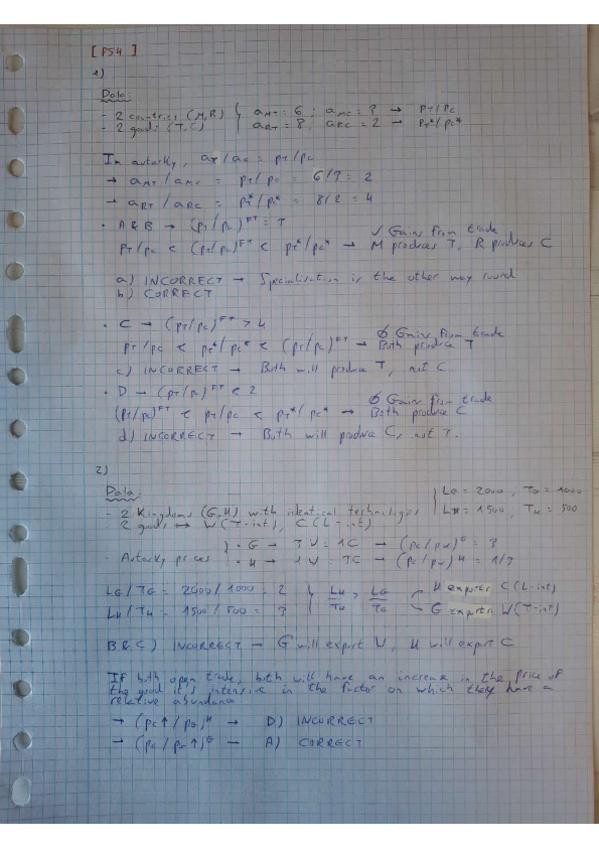 [ PS4 ]
1)
Data:
- 2 countries (M,R) } aMT = 6 ; aMC = 3 → PT/PC
- 2 goods (T,C) aRT = 8, aRC = 2 → PT*/PC*
In autarky, aT/aC = PT/PC
→ aMT/aMC = PT/PC = 6/3 = 2
→ aRT/aRC = PT*/PC* = 8/2 = 4
• A&B → (PT/PC)^FT = 3
✓ Gains from trade
PT/PC < (PT/PC)^FT < PT*/PC* → M produces T, R produces C
a) INCORRECT → Specialisation is the other way round
b) CORRECT
• C → (PT/PC)^FT > 4
∅ Gains from trade
PT/PC < PT*/PC* < (PT/PC)^FT → Both produce T
c) INCORRECT → Both will produce T, not C
• D → (PT/PC)^FT < 2
∅ Gains from trade
(PT/PC)^FT < PT/PC < PT*/PC* → Both produce C
d) INCORRECT → Both will produce C, not T.
2)
Data:
- 2 Kingdoms (G,H) with identical technologies | LG = 2000, TG = 1000
- 2 goods → W(T-int), C(L-int) | LH = 1500, TH = 500
- Autarky prices } • G → 3W = 1C → (PC/PW)^G = 3
• H → 1W = 3C → (PC/PW)^H = 1/3
LG/TG = 2000/1000 = 2 } LH/TH > LG/TG H exports C(L-int)
LH/TH = 1500/500 = 3 G exports W(T-int)
B&C) INCORRECT → G will export W, H will export C
If both open trade, both will have an increase in the price of
the good it's intensive in the factor on which they have a
relative abundance
→ (PC↑/PW)^H → D) INCORRECT
→ (PC/PW↑)^G → A) CORRECT